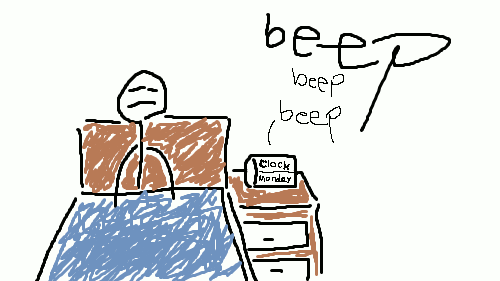 beep
beep
beep
Clock
Monday